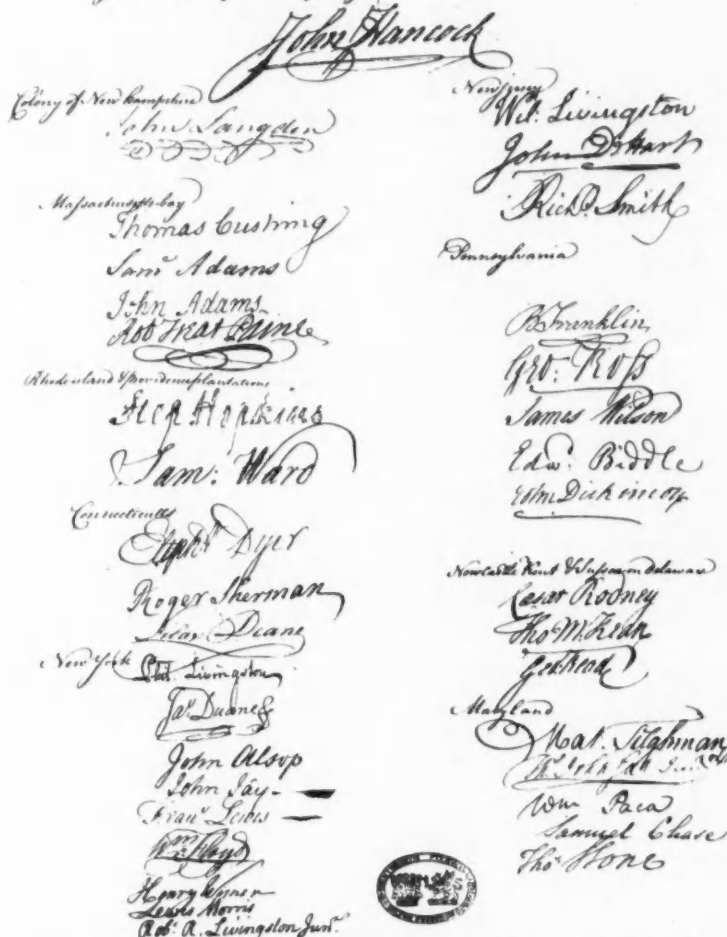 John Hancock
Colony of New Hampshire
John Langdon
Massachusetts-bay
Thomas Cushing
Sam<sup>l</sup> Adams
John Adams
Rob Treat Paine
Rhode island & providence plantations
Step Hopkins
Sam: Ward
Connecticut
Eliph<sup>t</sup> Dyer
Roger Sherman
Silas Deane
New York
Phil. Livingston
Ja<sup>s</sup> Duane
John Alsop
John Jay
Fran<sup>s</sup> Lewis
W<sup>m</sup> Floyd
Henry Wisner
Lewis Morris
Rob<sup>t</sup> R. Livingston Jun<sup>r</sup>
New jersey
Wil: Livingston
John DeHart
Rich<sup>d</sup> Smith
Pennsylvania
B Franklin
Geo: Ross
James Wilson
Edw<sup>d</sup> Biddle
John Dickinson
Newcastle Kent & Sussex on delaware
Caesar Rodney
Tho M:Kean
Geo: Read
Maryland
Mat. Tilghman
Th<sup>s</sup> Johnson Jun<sup>r</sup>
Wm Paca
Samuel Chase
Tho<sup>s</sup> Stone